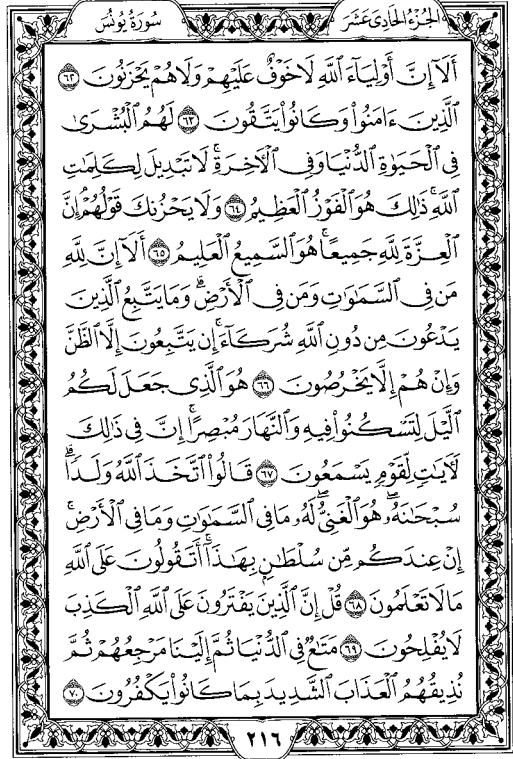 الجُزْءُ الحَادِى عَشَرَ
سُورَةُ يُونُسَ
أَلَآ إِنَّ أَوْلِيَآءَ ٱللَّهِ لَا خَوْفٌ عَلَيْهِمْ وَلَا هُمْ يَحْزَنُونَ ٦٢
ٱلَّذِينَ ءَامَنُوا۟ وَكَانُوا۟ يَتَّقُونَ ٦٣ لَهُمُ ٱلْبُشْرَىٰ
فِى ٱلْحَيَوٰةِ ٱلدُّنْيَا وَفِى ٱلْأَخِرَةِ ۚ لَا تَبْدِيلَ لِكَلِمَٰتِ
ٱللَّهِ ۚ ذَٰلِكَ هُوَ ٱلْفَوْزُ ٱلْعَظِيمُ ٦٤ وَلَا يَحْزُنكَ قَوْلُهُمْ ۘ إِنَّ
ٱلْعِزَّةَ لِلَّهِ جَمِيعًا ۚ هُوَ ٱلسَّمِيعُ ٱلْعَلِيمُ ٦٥ أَلَآ إِنَّ لِلَّهِ
مَن فِى ٱلسَّمَٰوَٰتِ وَمَن فِى ٱلْأَرْضِ ۗ وَمَا يَتَّبِعُ ٱلَّذِينَ
يَدْعُونَ مِن دُونِ ٱللَّهِ شُرَكَآءَ ۚ إِن يَتَّبِعُونَ إِلَّا ٱلظَّنَّ
وَإِنْ هُمْ إِلَّا يَخْرُصُونَ ٦٦ هُوَ ٱلَّذِى جَعَلَ لَكُمُ
ٱلَّيْلَ لِتَسْكُنُوا۟ فِيهِ وَٱلنَّهَارَ مُبْصِرًا ۚ إِنَّ فِى ذَٰلِكَ
لَأَيَٰتٍ لِّقَوْمٍ يَسْمَعُونَ ٦٧ قَالُوا۟ ٱتَّخَذَ ٱللَّهُ وَلَدًا ۗ
سُبْحَٰنَهُۥ ۖ هُوَ ٱلْغَنِىُّ ۖ لَهُۥ مَا فِى ٱلسَّمَٰوَٰتِ وَمَا فِى ٱلْأَرْضِ ۚ
إِنْ عِندَكُم مِّن سُلْطَٰنٍۭ بِهَٰذَآ ۚ أَتَقُولُونَ عَلَى ٱللَّهِ
مَا لَا تَعْلَمُونَ ٦٨ قُلْ إِنَّ ٱلَّذِينَ يَفْتَرُونَ عَلَى ٱللَّهِ ٱلْكَذِبَ
لَا يُفْلِحُونَ ٦٩ مَتَٰعٌ فِى ٱلدُّنْيَا ثُمَّ إِلَيْنَا مَرْجِعُهُمْ ثُمَّ
نُذِيقُهُمُ ٱلْعَذَابَ ٱلشَّدِيدَ بِمَا كَانُوا۟ يَكْفُرُونَ ٧٠
٢١٦